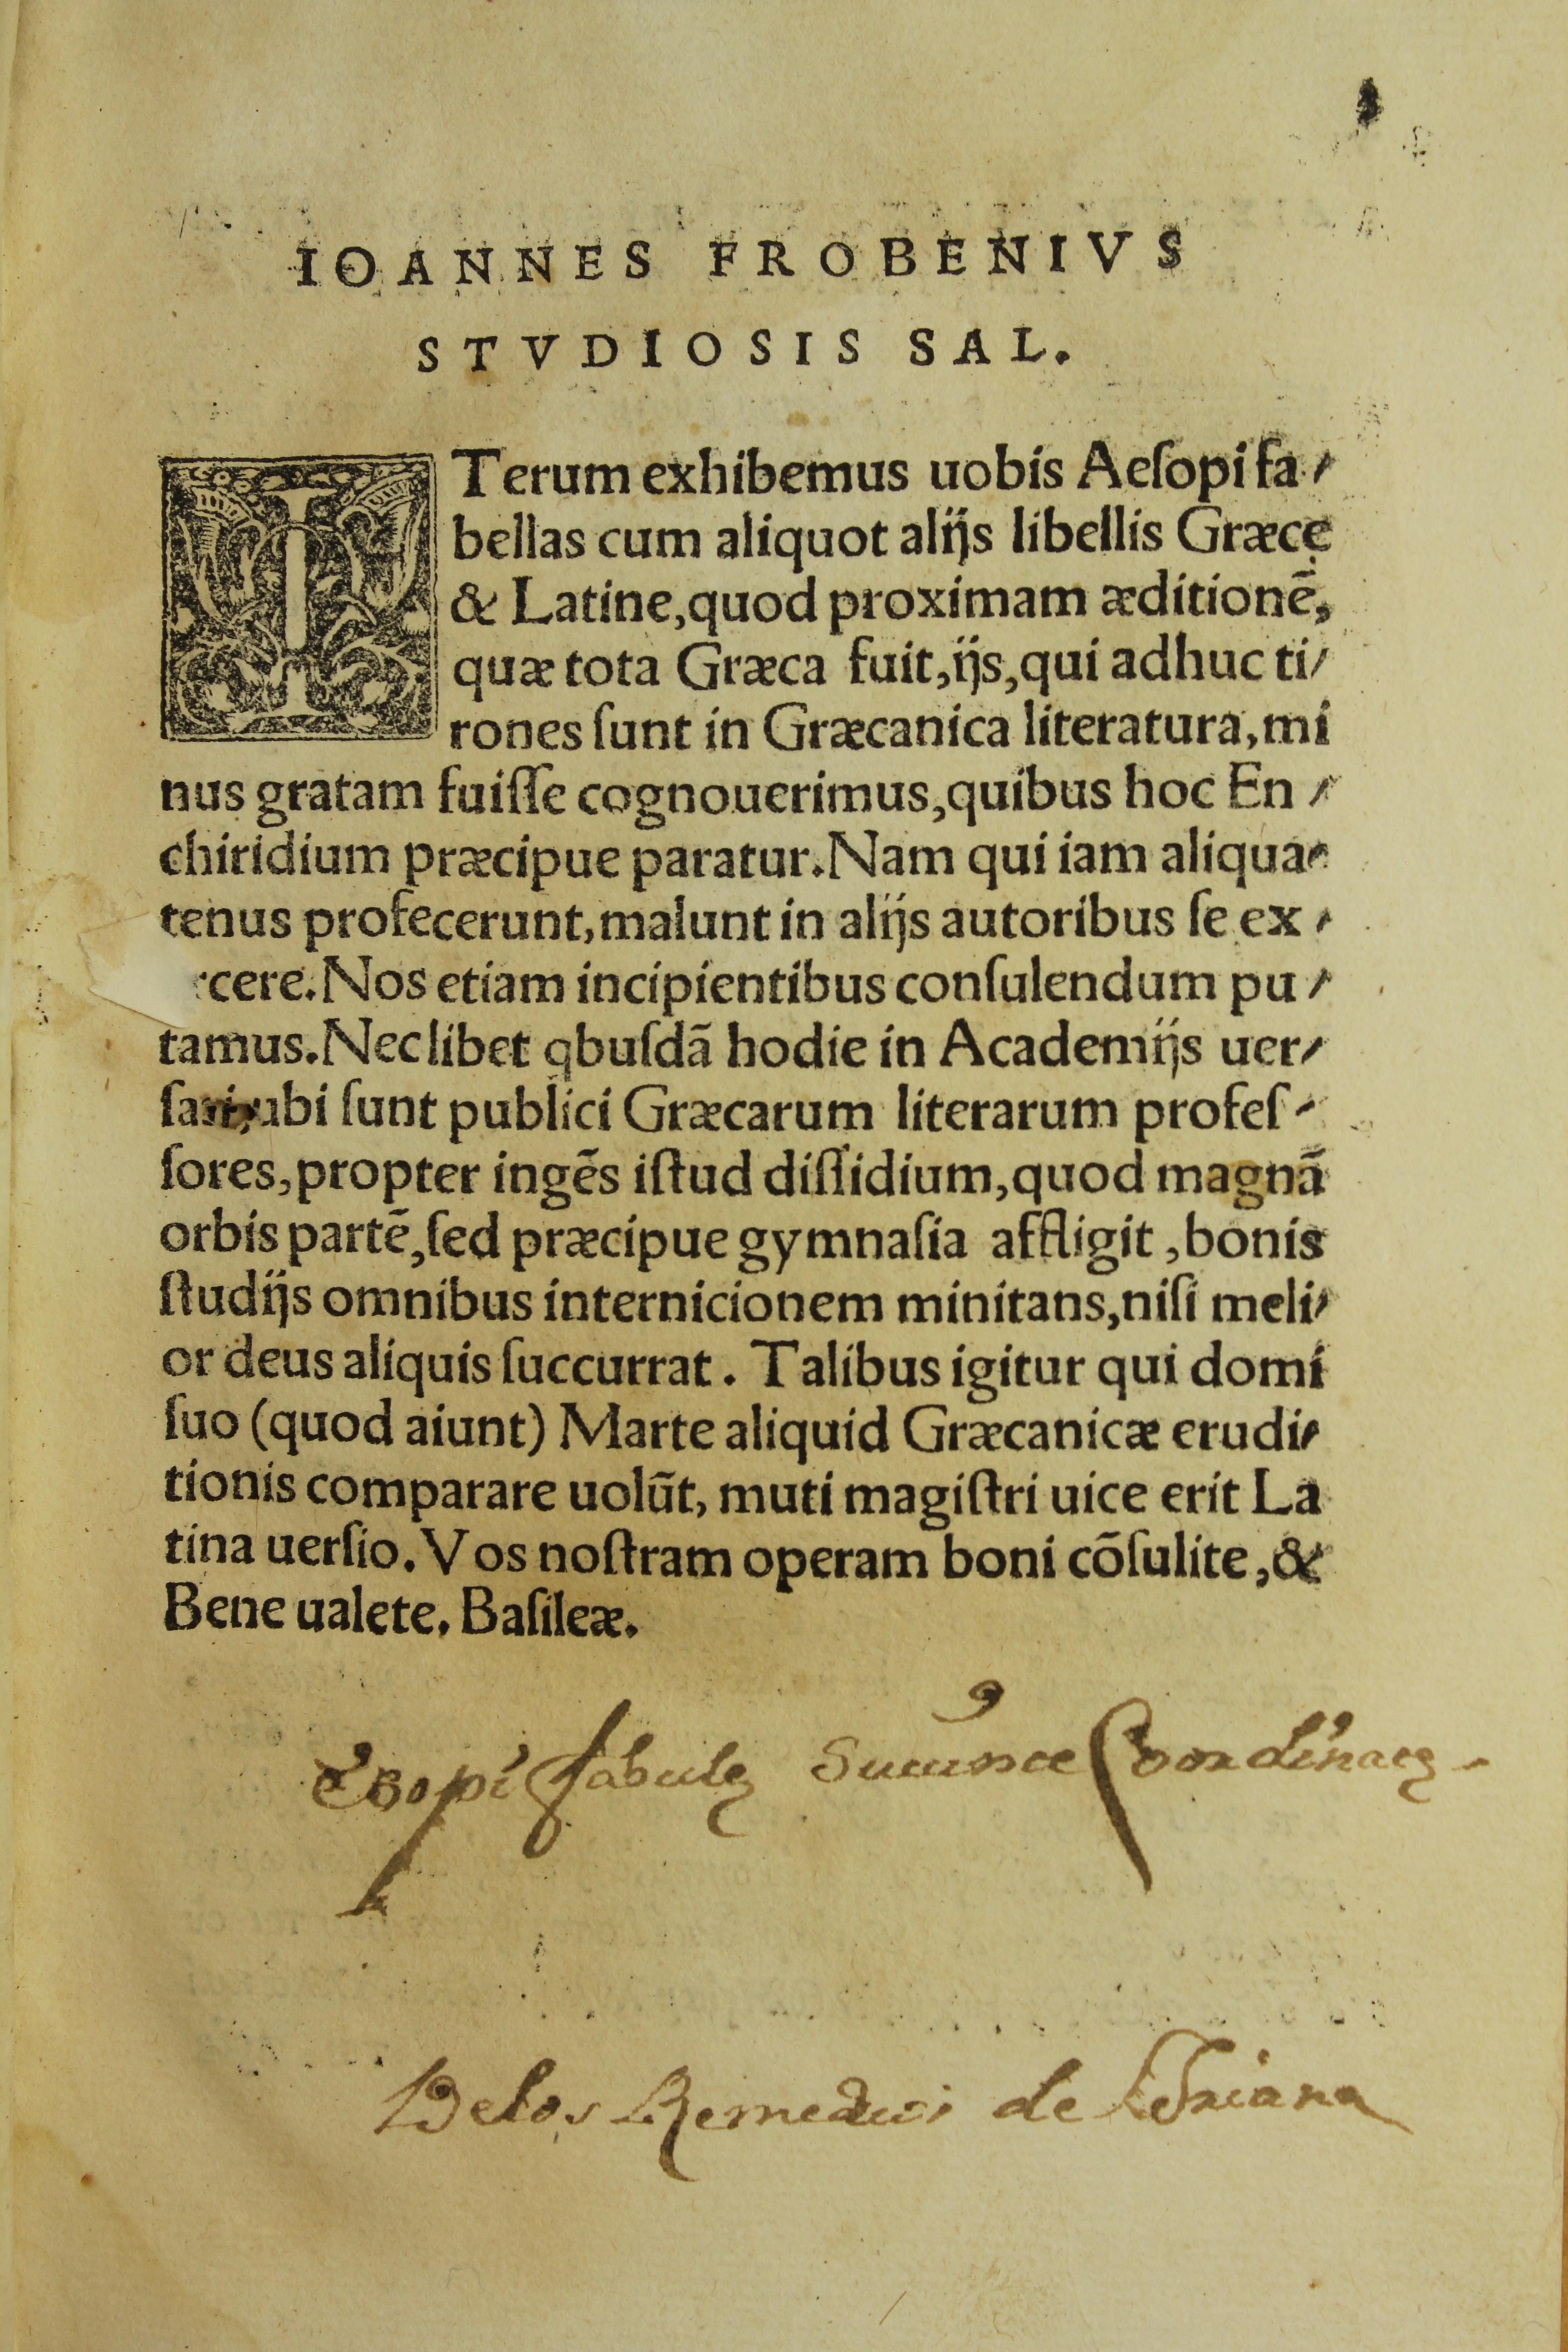 IOANNES FROBENIVS
STVDIOSIS SAL.
ITerum exhibemus uobis Aeſopi fa⸗
bellas cum aliquot alijs libellis Græcę
& Latine, quod proximam æditionē,
quæ tota Græca fuit, ijs, qui adhuc ti⸗
rones ſunt in Græcanica literatura, mi
nus gratam fuiſſe cognouerimus, quibus hoc En⸗
chiridium præcipue paratur. Nam qui iam aliqua⸗
tenus profecerunt, malunt in alijs autoribus ſe ex⸗
rcere. Nos etiam incipientibus conſulendum pu⸗
tamus. Nec libet qbuſdā hodie in Academijs uer⸗
ſari, ubi ſunt publici Græcarum literarum profeſ⸗
ſores, propter ingēs iſtud diſſidium, quod magnā
orbis partē, ſed præcipue gymnaſia affligit, bonis
ſtudijs omnibus internicionem minitans, niſi meli⸗
or deus aliquis ſuccurrat. Talibus igitur qui domi
ſuo (quod aiunt) Marte aliquid Græcanicæ erudi⸗
tionis comparare uolūt, muti magiſtri uice erit La
tina uerſio. Vos noſtram operam boni cōſulite, &
Bene ualete. Baſileæ.
fabulę
Delos Remedios de Triana